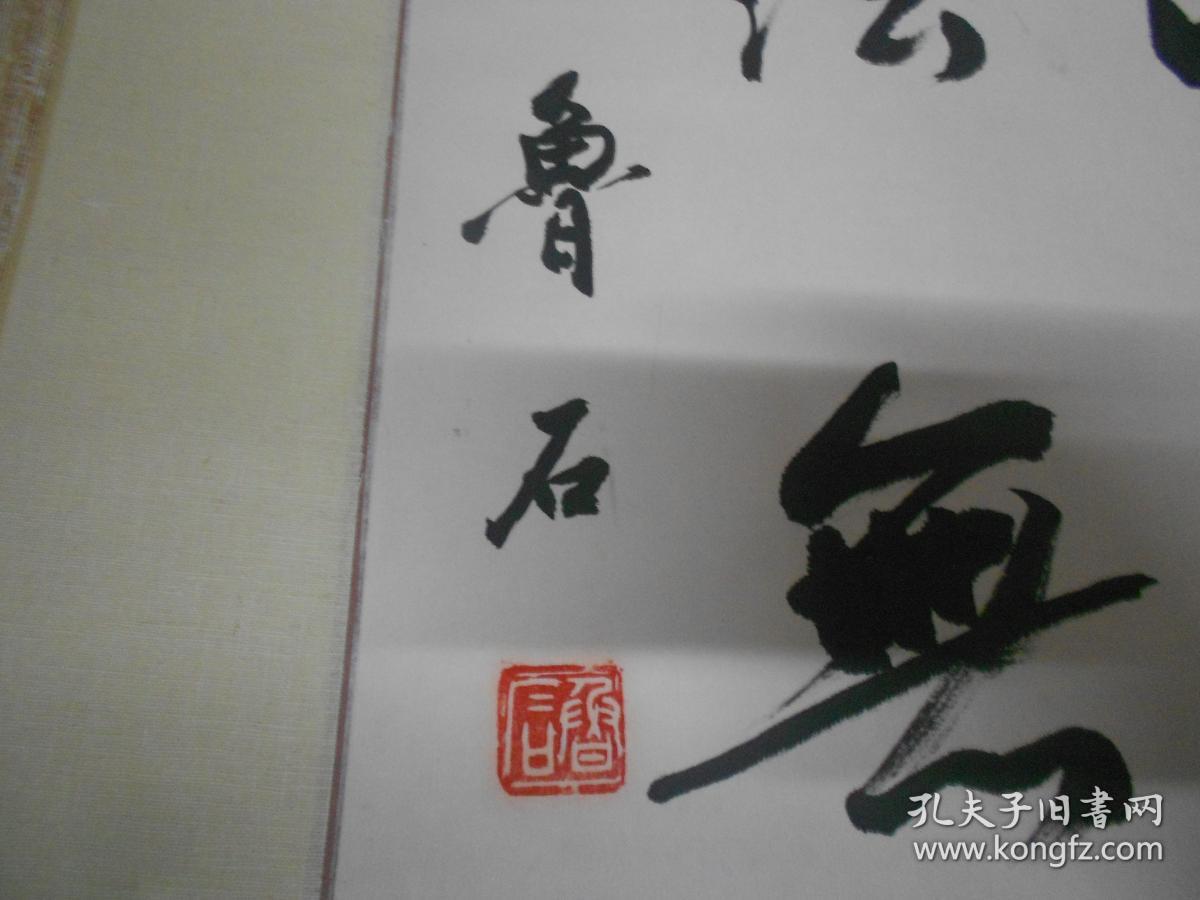 無
魯石
魯石
孔夫子旧书网
www.kongfz.com